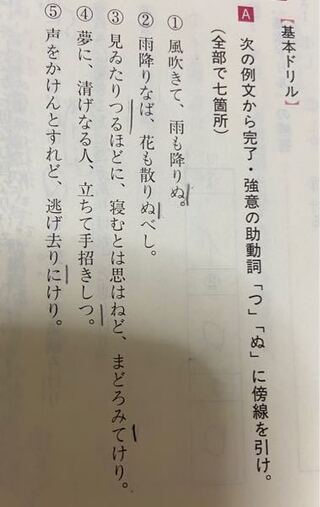 【基本ドリル】
A 次の例文から完了・強意の助動詞「つ」「ぬ」に傍線を引け。
（全部で七箇所）
① 風吹きて、雨も降りぬ。
② 雨降りなば、花も散りぬべし。
③ 見ゐたりつるほどに、寝むとは思はねど、まどろみてけり。
④ 夢に、清げなる人、立ちて手招きしつ。
⑤ 声をかけんとすれど、逃げ去りにけり。